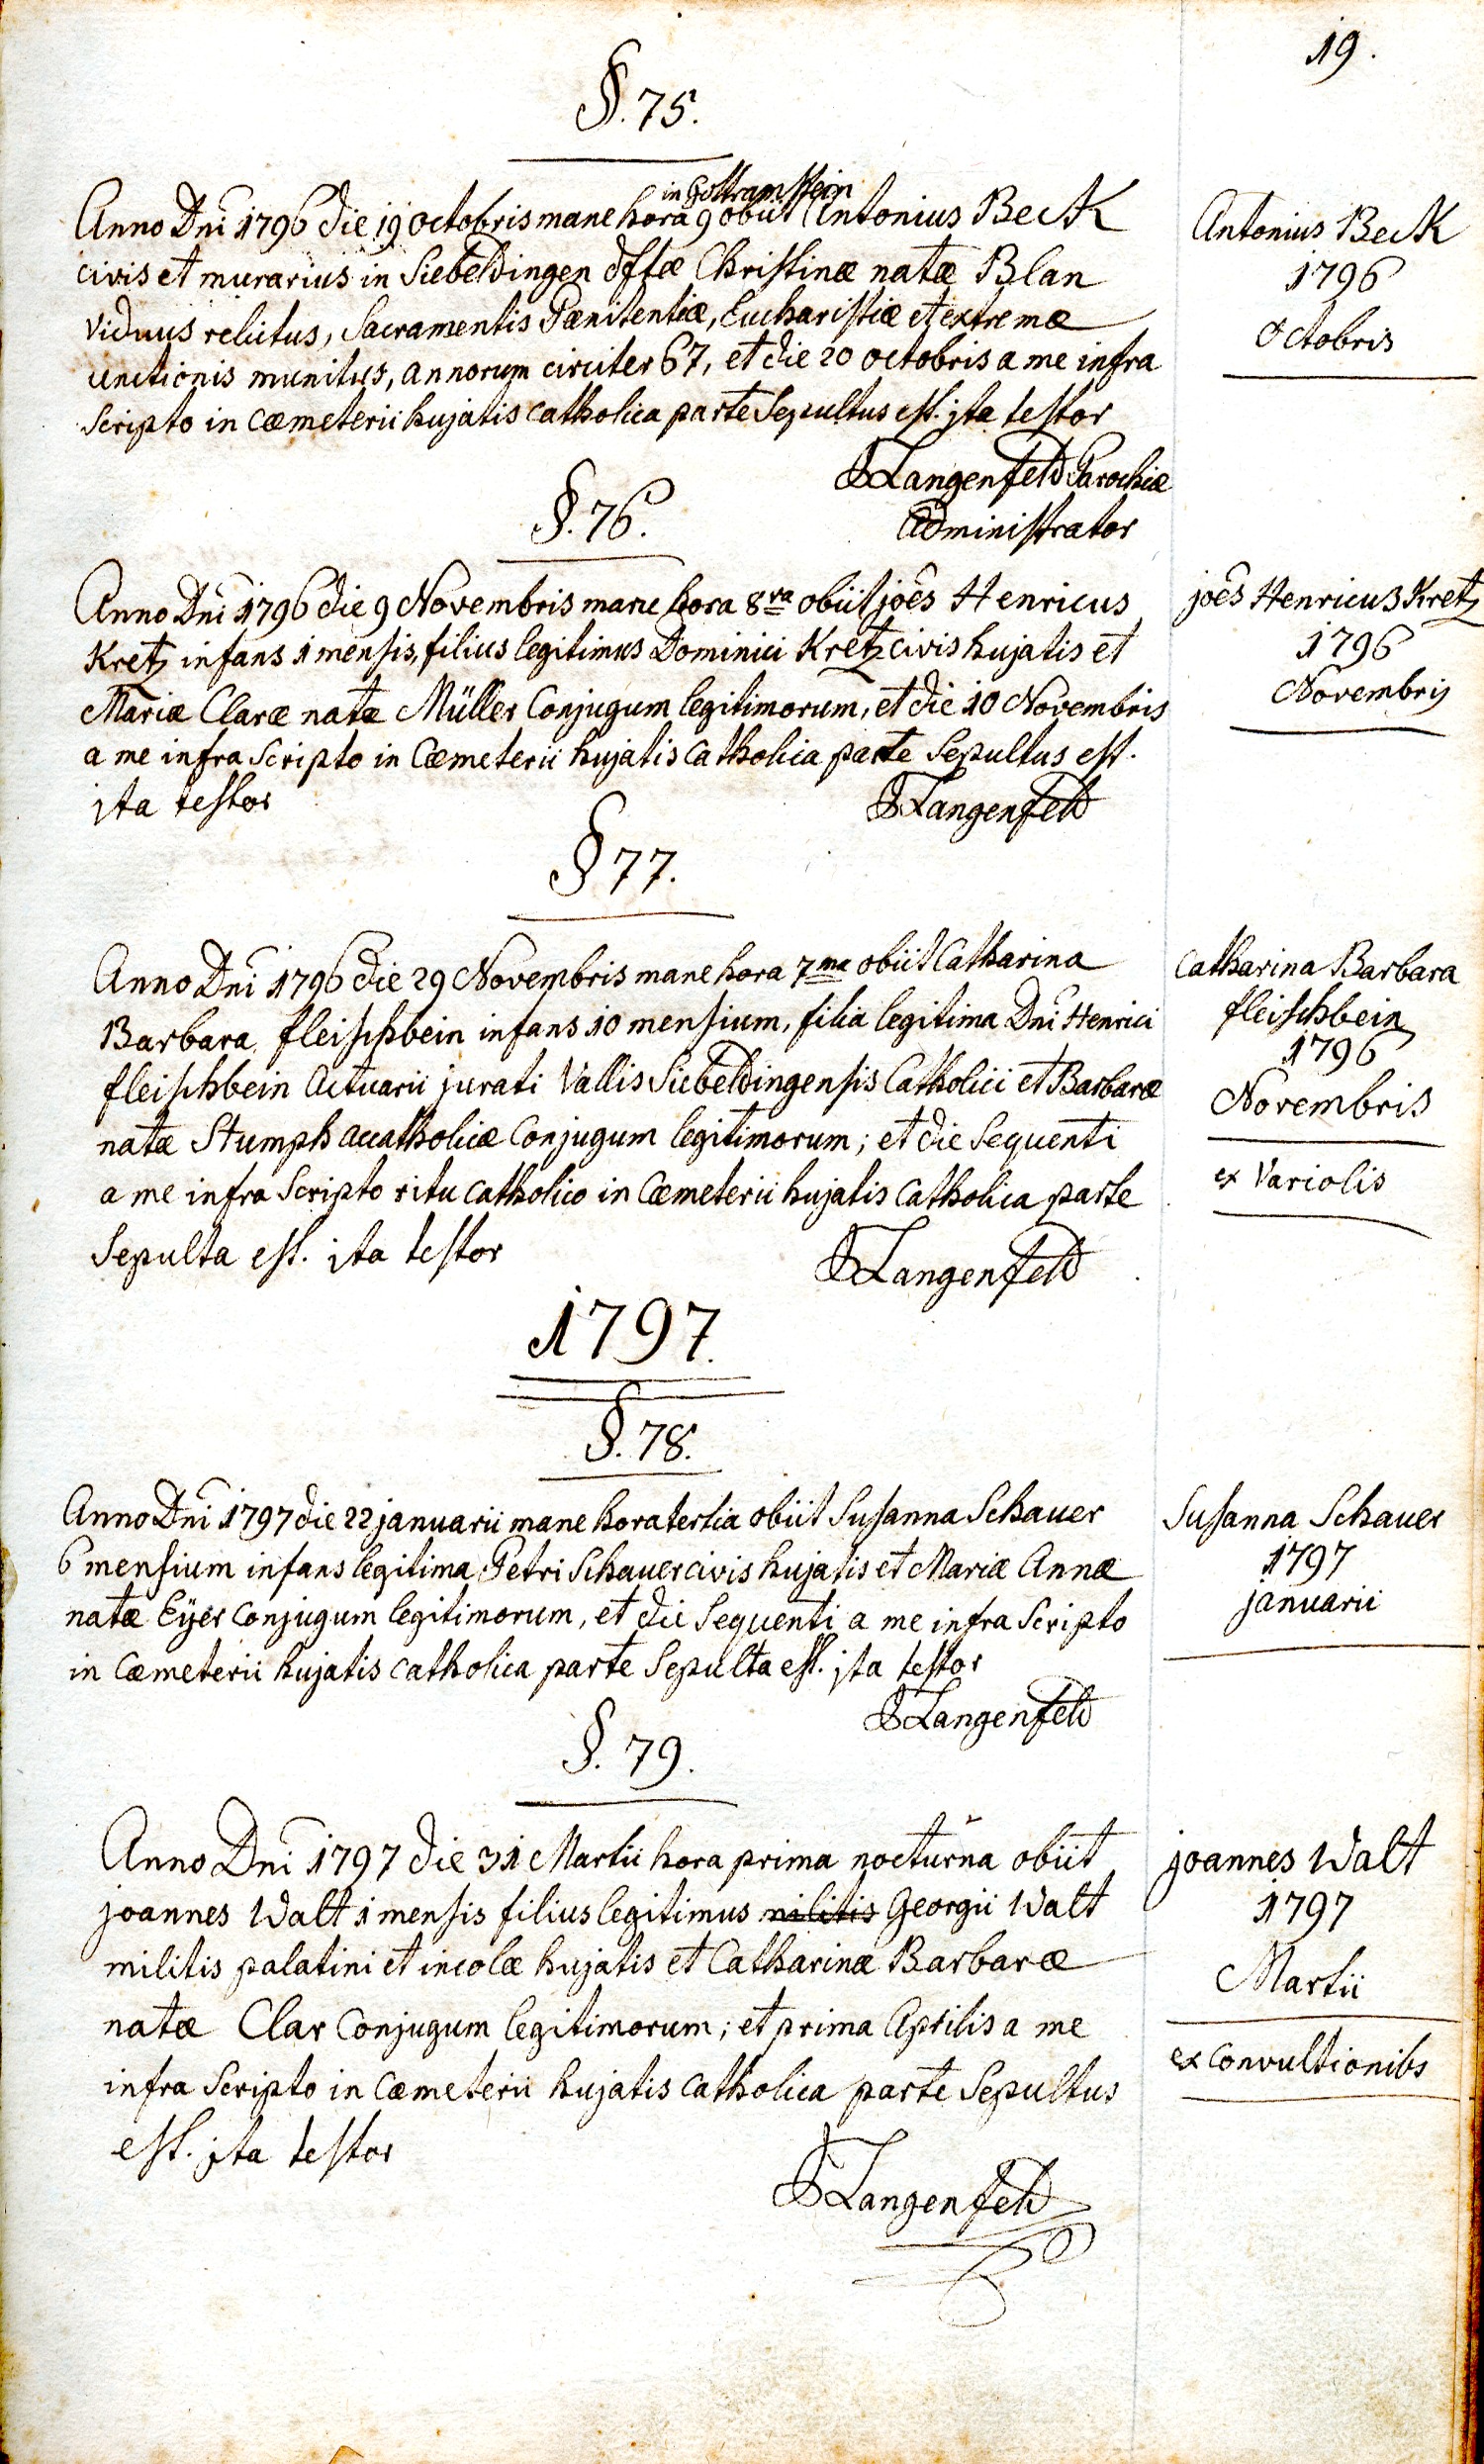 19.
§. 75.
in Gottramstein
Anno Dni 1796 die 19 octobris mane hora 9 obiit Antonius Beck
civis et murarius in Siebeldingen dftæ Christinæ natæ Blan
viduus relictus, Sacramentis Pœnitentiæ, Eucharistiæ et extremæ
unctionis munitus, annorum circiter 67, et die 20 octobris a me infra
scripto in Cœmeterii hujatis catholica parte Sepultus est. jta testor
JLangenfeld Parochiæ
Administrator
Antonius Beck
1796
octobris
§. 76.
Anno Dni 1796 die 9 Novembris mane hora 8va obiit joês Henricus
Kretz infans 1 mensis, filius legitimus Dominici Kretz civis hujatis et
Mariæ Claræ natæ Müller Conjugum legitimorum, et die 10 Novembris
a me infra Scripto in Cœmeterii hujatis catholica parte Sepultus est.
jta testor
JLangenfeld
joês Henricus Kretz
1796
Novembris
§ 77.
Anno Dni 1796 die 29 Novembris mane hora 7ma obiit Catharina
Barbara fleischbein infans 10 mensium, filia legitima Dni Henrici
fleischbein Actuarii jurati Vallis Siebeldingensis Catholici et Barbaræ
natæ Stumph accatholicæ Conjugum legitimorum; et die Sequenti
a me infra Scripto ritu catholico in Cœmeterii hujatis catholica parte
Sepulta est. jta testor
JLangenfeld
Catharina Barbara
fleischbein
1796
Novembris
ex Variolis
1797.
§. 78.
Anno Dni 1797 die 22 januarii mane hora tertia obiit Susanna Schauer
6 mensium infans legitima Petri Schauer civis hujatis et Mariæ Annæ
natæ Eÿer conjugum legitimorum, et die Sequenti a me infra Scripto
in Cœmeterii hujatis catholica parte Sepulta est. jta testor
JLangenfeld
Susanna Schauer
1797
januarii
§. 79.
Anno Dni 1797 die 31 Martii hora prima nocturna obiit
joannes Walt 1 mensis filius legitimus militis Georgii Walt
militis palatini et incolæ hujatis et Catharinæ Barbaræ
natæ Clar Conjugum legitimorum; et prima Aprilis a me
infra Scripto in Cœmeterii hujatis catholica parte Sepultus
est. jta testor
JLangenfeld
joannes Walt
1797
Martii
ex convultionibs